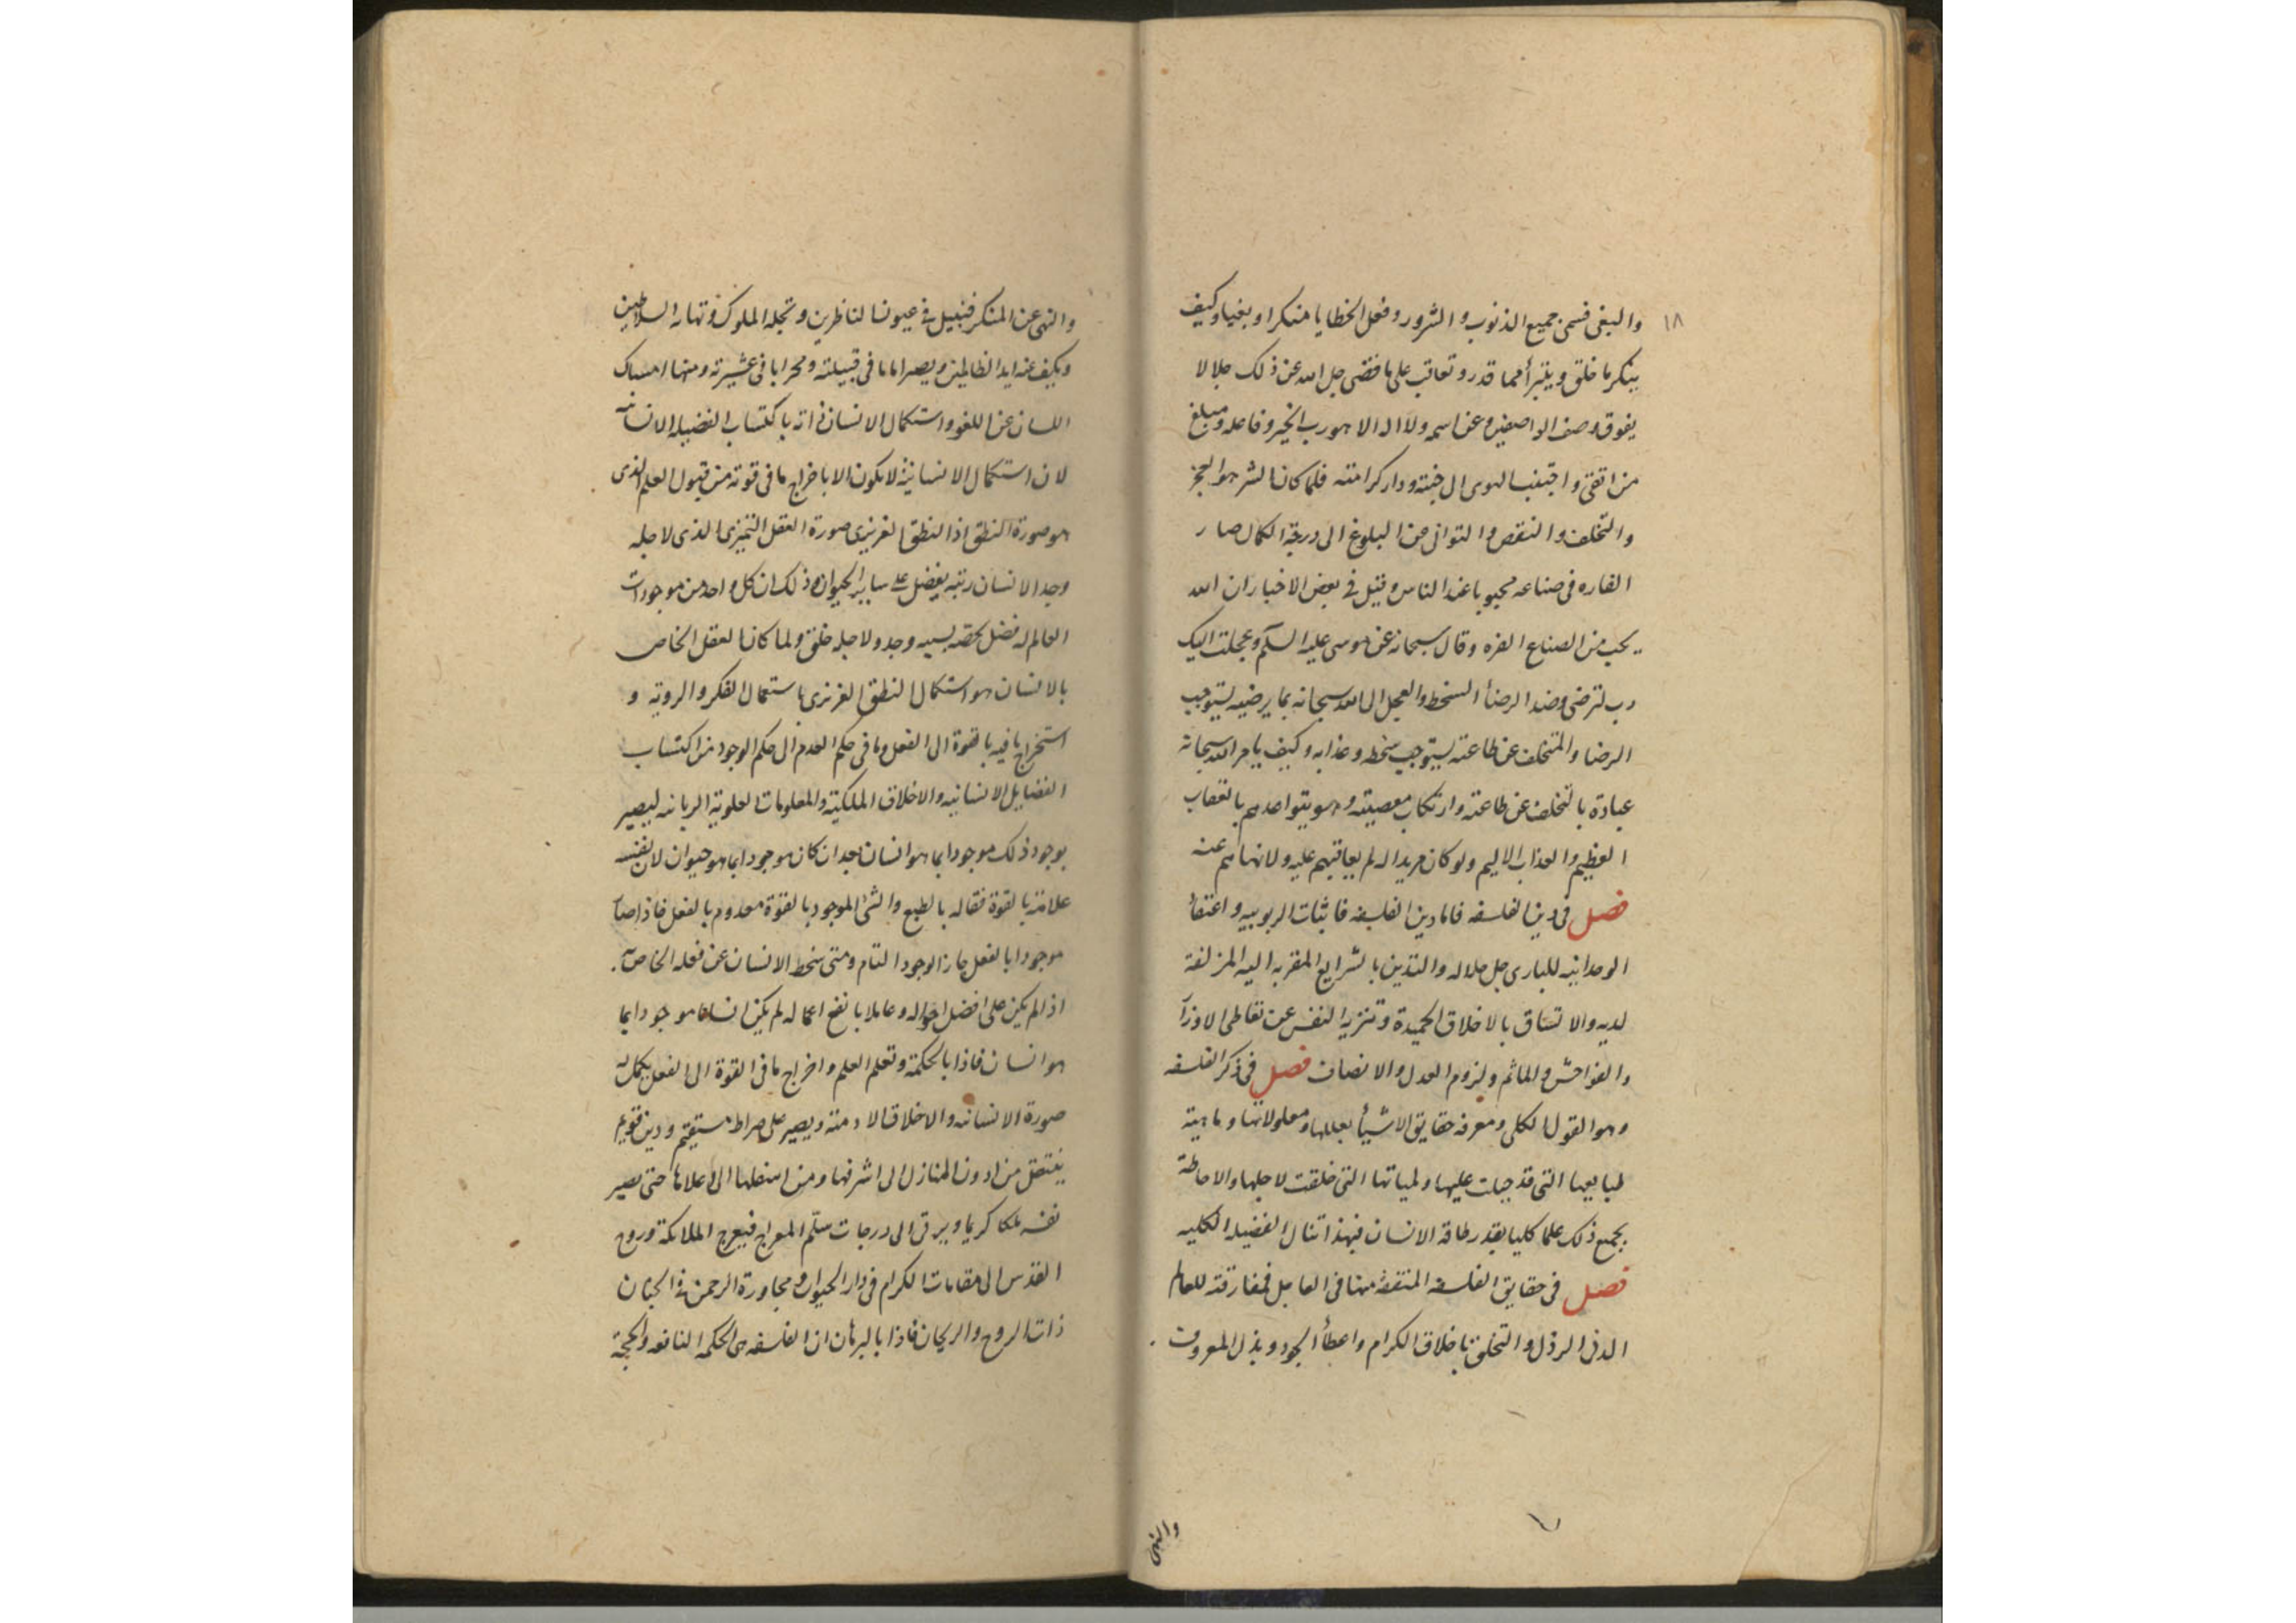 ١٨
والبغي فسمى جميع الذنوب والشرور وفعل الخطايا منكرا وبغيا وكيف
ينكر ما خلق ويتبرأ مما قدر وتعاقب على ما قضى جل الله عن ذلك جلالا
يفوق وصف الواصفين وعز اسمه ولا اله الا هو رب الخير وفاعله ومبلغ
من اتقى واجتنب الهوى الى جنته ودار كرامته فلما كان الشر هو العجز
والتخلف والنقص والتوانى من البلوغ الى درجة الكمال صار
الفاره فى صناعه محبوبا عند الناس وقيل في بعض الاخبار ان الله
يحب من الصناع الفره وقال سبحانه عن موسى عليه السلم وعجلت اليك
رب لترضى وضد الرضأ السخط والعجل الى الله سبحانه بما يرضيه يستوجب
الرضا والمتخلف عن طاعته يستوجب سخطه وعذابه وكيف يامر الله سبحانه
عباده بالتخلف عن طاعته وارتكاب معصيته وهو يتواعدهم بالعقاب
العظيم والعذاب الاليم ولو كان مريدا له لم يعاقبهم عليه ولا نهاهم عنه
فصل فى دين الفلسفه فاما دين الفلسفه فاثبات الربوبيه واعتقاد
الوحدانيه للبارى جل جلاله والتدين بالشرايع المقربه اليه المزلفة
لديه والاتساق بالاخلاق الحميدة وتنزيه النفس عن تعاطى الاوزار
والفواحش والماثم ولزوم العدل والانصاف فصل فى ذكر الفلسفه
وهو القول الكلى ومعرفة حقايق الاشيأ بعللها ومعلولاتها وماهية
طبايعها التى قد جبلت عليها ولمياتها التى خلقت لاجلها والاحاطة
بجميع ذلك علما كليا بقدر طاقة الانسان فبهذا تنال الفضيله الكليه
فصل فى حقايق الفلسفه المنتفقة منها فى العاجل فمفارقته للعالم
الدنى الرذل والتخلق باخلاق الكرام واعطأ الجود وبذل المعروف
والنهى
والنهى عن المنكر فنبيل في عيون الناظرين وتجله الملوك وتهابه السلاطين
ويكف عنه ايد الظالمين ويصير اماما فى قبيلته ومحرابا فى عشيرته ومنها امساك
اللسان عن اللغو واستكمال الانسان ذاته باكتساب الفضيله الانسانيه
لان استكمال الانسانية لا يكون الا باخراج ما فى قوته من قبول العلم الذى
هو صورة النطق اذ النطق الغريزى صورة العقل التميزى الذى لاجله
وجد الانسان رتبه يفضل على ساير الحيوان وذلك ان كل واحد من موجودات
العالم له فضل يخصه بسببه وجد ولاجله خلق ولما كان العقل الخاص
بالانسان هو استكمال النطق الغريزى باستعمال الفكر والروية و
استخراج ما فيه بالقوة الى الفعل وما فى حكم العدم الى حكم الوجود من اكتساب
الفضايل الانسانيه والاخلاق الملكية والمعلومات العلوية الربانه ليصير
بوجود ذلك موجودا بما هو انسان بعد ان كان موجودا بما هو حيوان لان نفسه
علامة بالقوة فعاله بالطبع والشئ الموجود بالقوة معدوم بالفعل فاذا صار
موجودا بالفعل حاز الوجود التام ومتى سخط الانسان عن فعله الخاص به
اذا لم يكن على افضل احواله وعاملا بانفع اعماله لم يكن انسانا موجودا بما
هو انسان فاذا بالحكمة وتعلم العلم واخراج ما فى القوة الى الفعل يكمل له
صورة الانسانيه والاخلاق الادمته ويصير على صراط مستقيم ودين قويم
ينتقل من ادون المنازل الى اشرفها ومن اسفلها الى اعلاها حتى تصير
نفسه ملكا كريما ويرقى الى درجات سلم المعراج فيعرج الملائكة وروح
القدس الى مقامات الكرام فى دار الحيوان ومجاورة الرحمن في الجنان
ذات الروح والريحان فاذا بالبرهان ان الفلسفه هى الحكمه النافعه والحجة